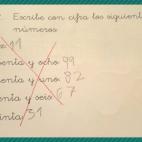 Escribe con cifra los siguient
números
11
enta y ocho 99
enta y uno 82
enta y seis 67
inta 31